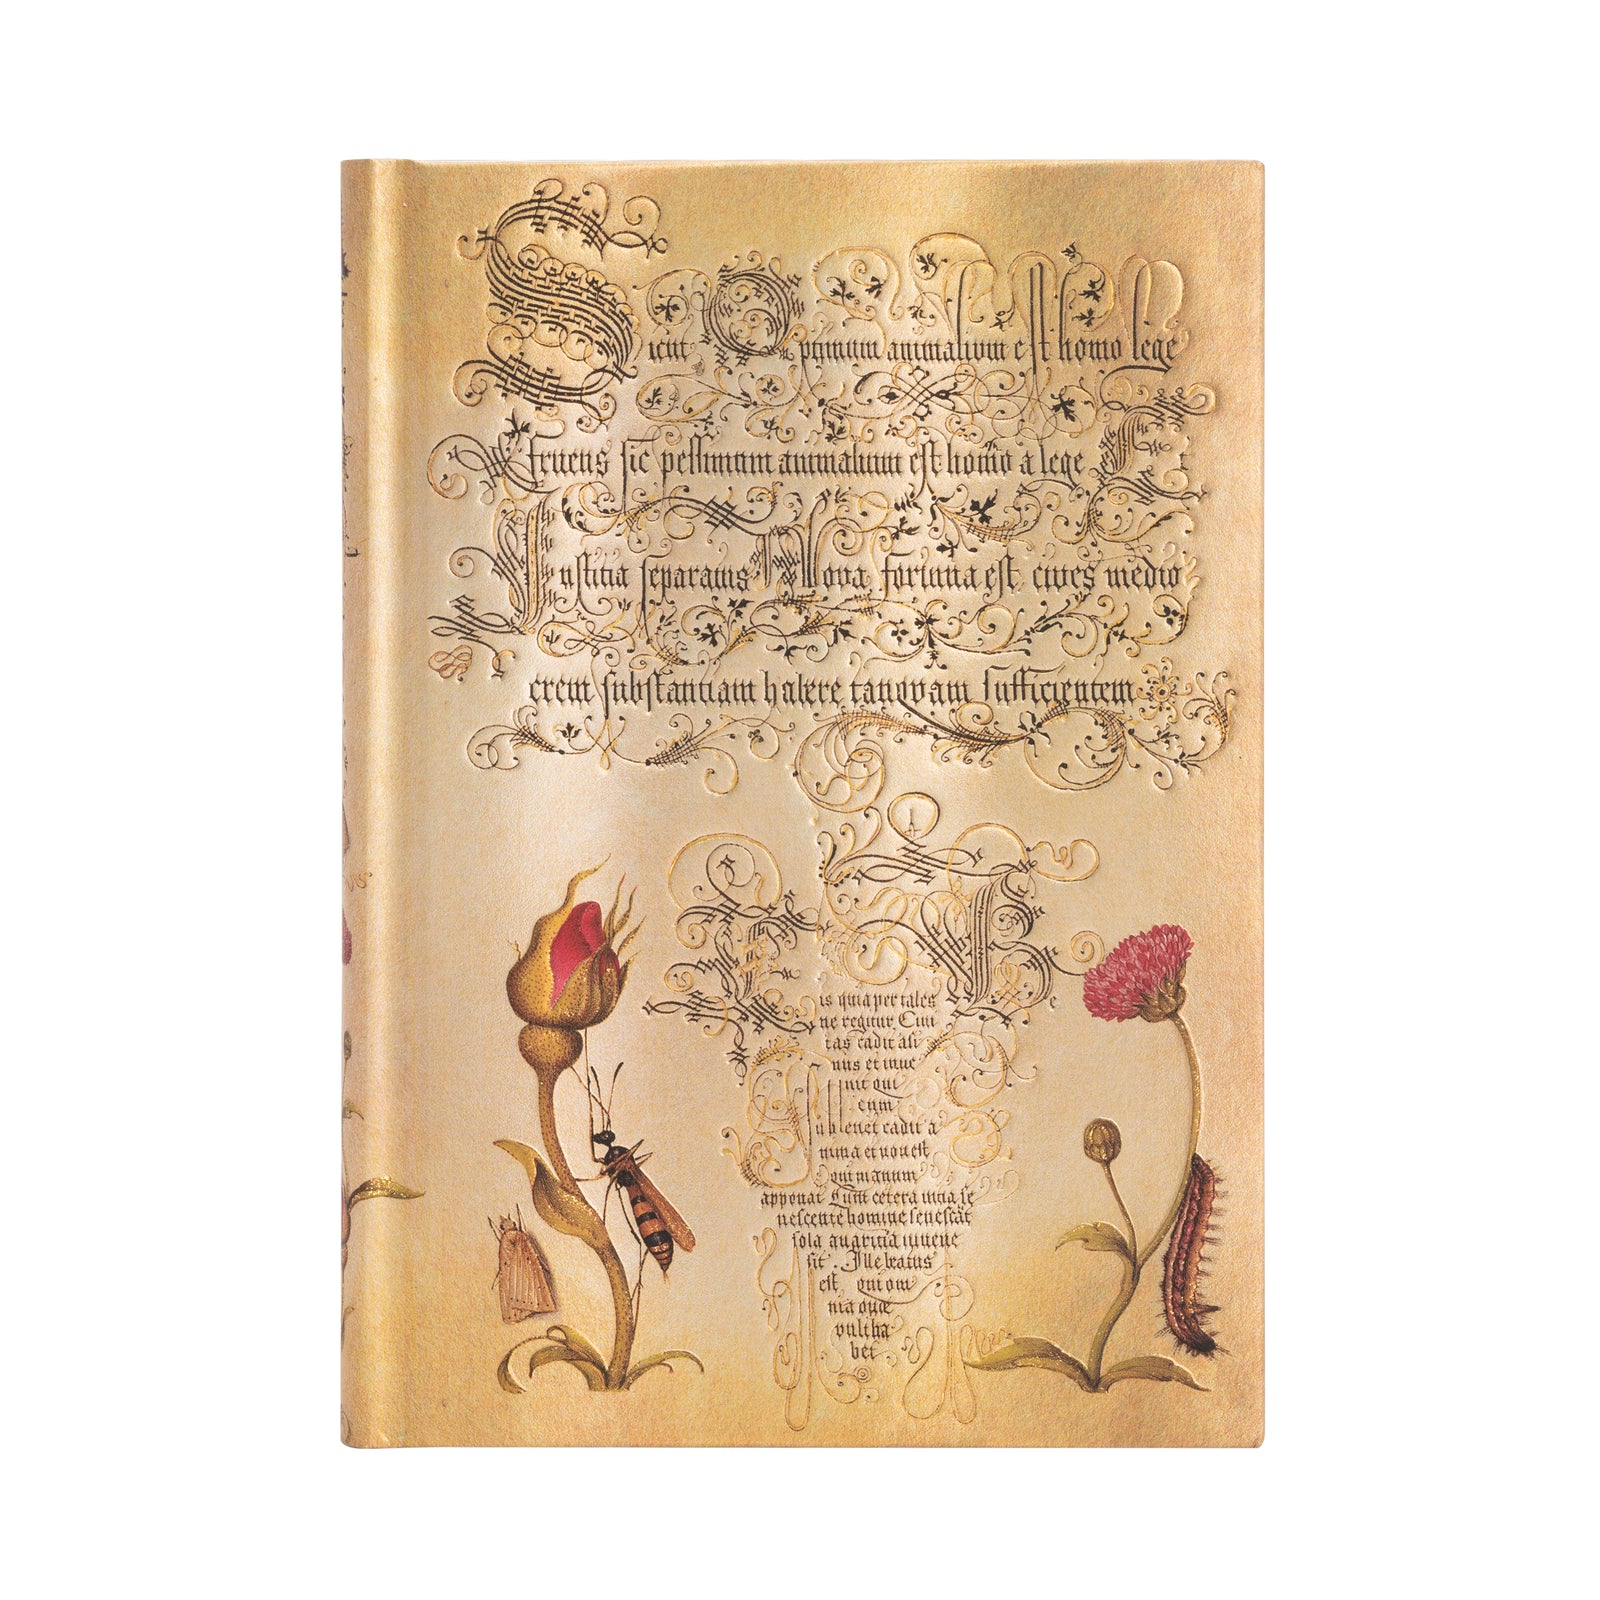 Sicut Optimum animalium est homo lege
fruens sic pessimum animalium est homo a lege et
Iustitia separatus Nova fortuna est, cives medio
crem substantiam habere tanquam sufficientem
is quia per tales
ne regitur Civi
tas cadit asi
nus et inve
nit qui
cum
sublevet cadit a
nima et non est
qui manum
apponat Cum cetera vitia se
nescente homine senescāt
sola avaritia iuvene
sit. Ille beatus
est qui om
nia quæ
vult ha
bet